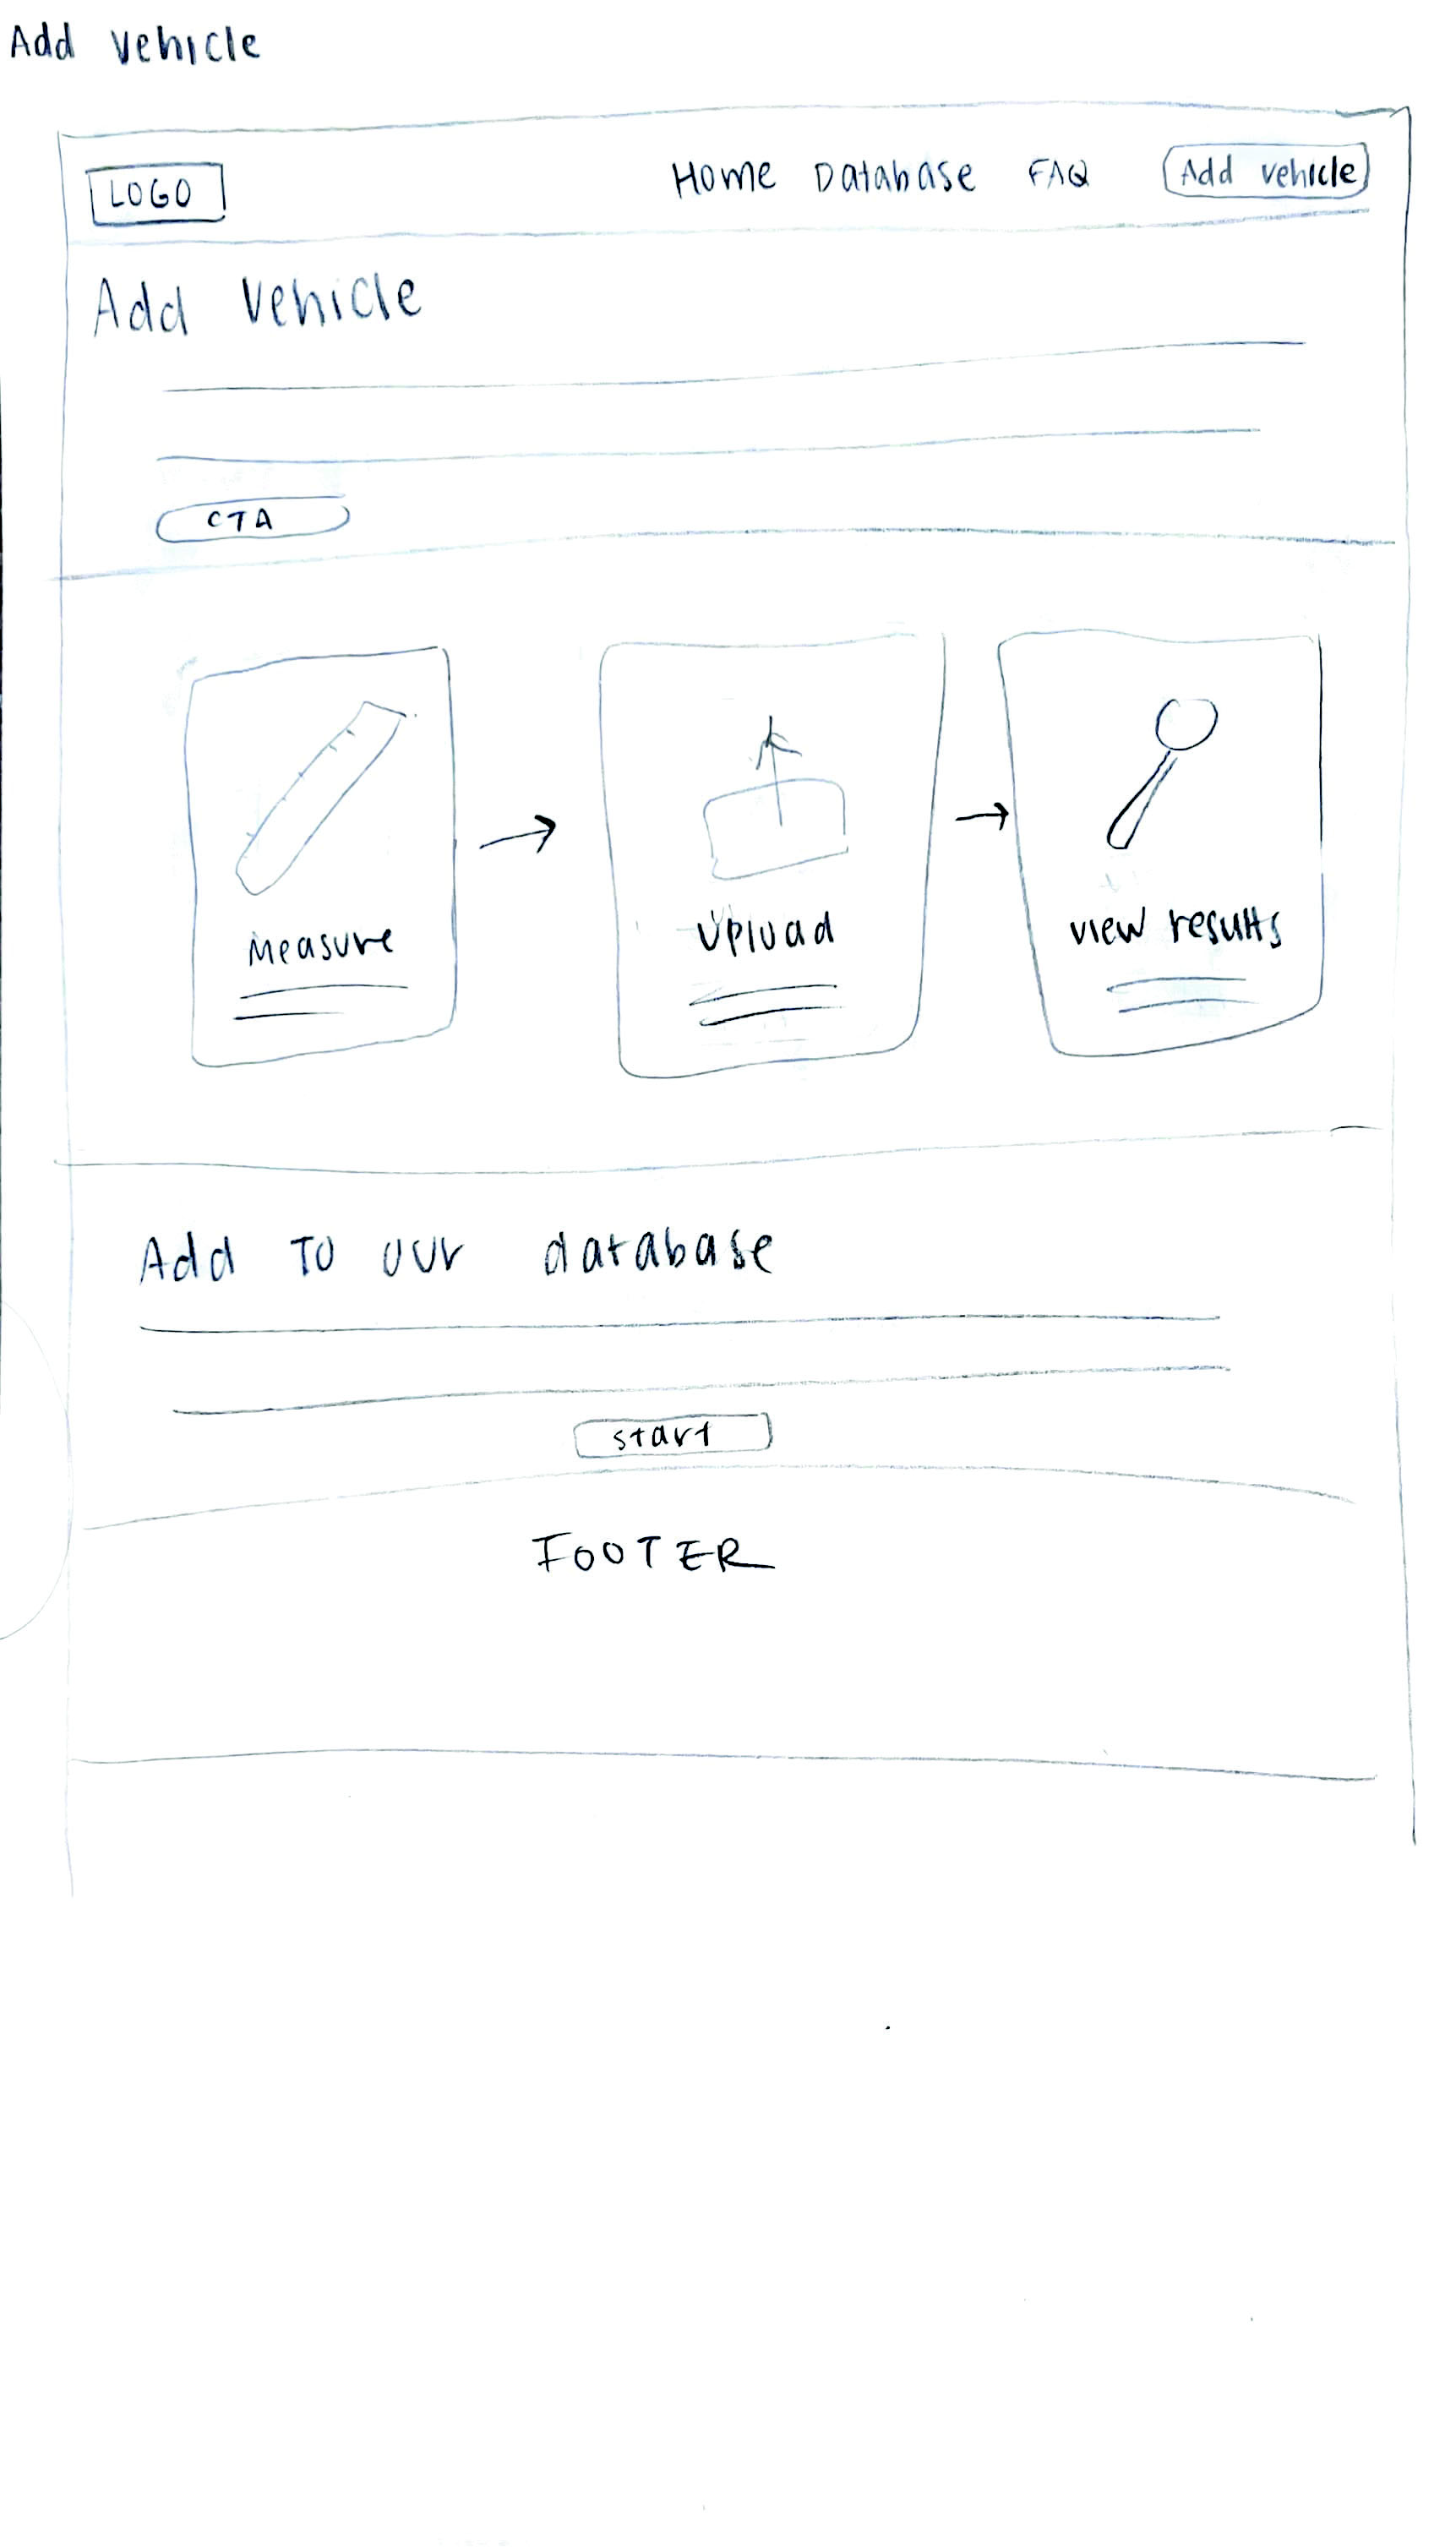 Add vehicle
LOGO
Home Database FAQ Add vehicle
Add Vehicle
CTA
Measure
Upload
view results
Add To our database
start
FOOTER